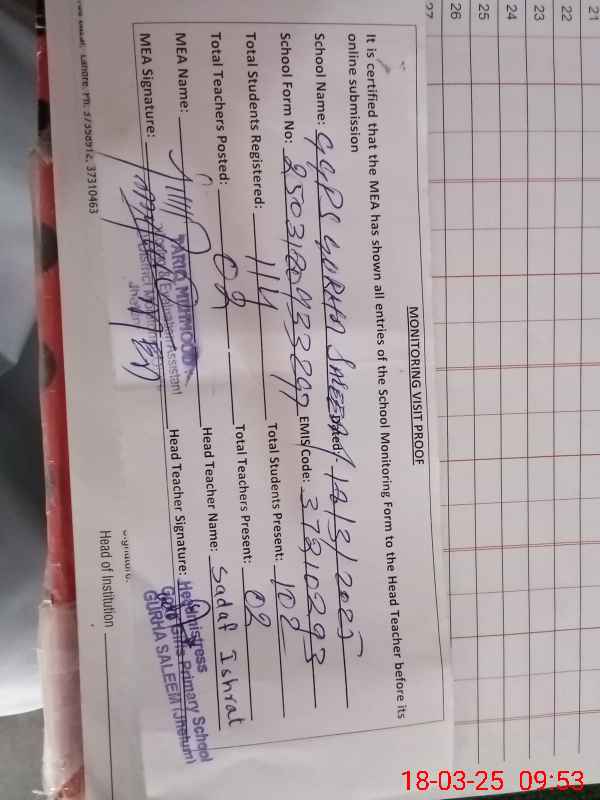 MONITORING VISIT PROOF
It is certified that the MEA has shown all entries of the School Monitoring Form to the Head Teacher before its
online submission
School Name: GGPS GURHA SALEEM Dated: 18/3/2025
School Form No: EMIS Code: 37210293
Total Students Registered: 114 Total Students Present: 102
Total Teachers Posted: 02 Total Teachers Present: 02
MEA Name: Head Teacher Name: Sadaf Ishrat
MEA Signature: Head Teacher Signature:
TARIQ MEHMOOD
Assistant
Headmistress
Govt Girls Primary School
GURHA SALEEM (Jhelum)
Head of Institution
Lahore. Ph: 37358912, 37310463
21
22
23
24
25
26
27
18-03-25 09:53